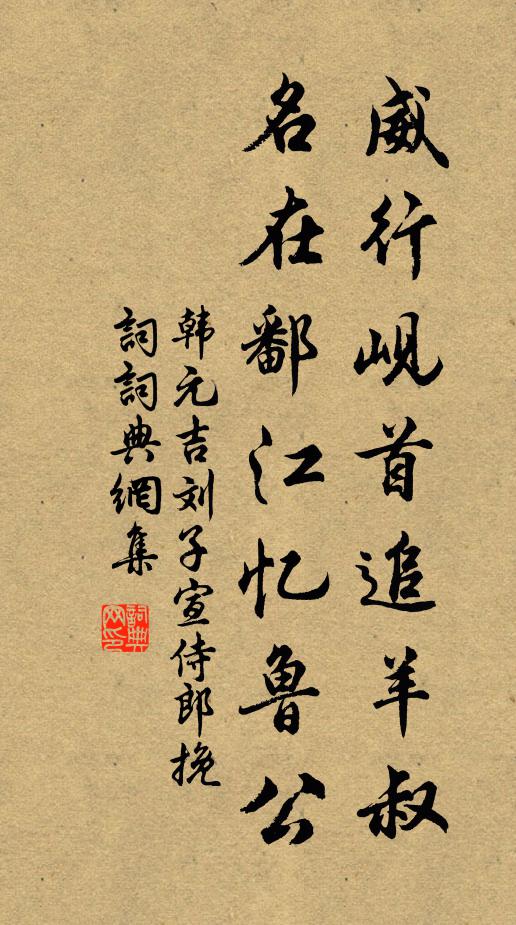 威行岘首追羊叔
名在鄱江忆鲁公
韩元吉刘子宣侍郎挽
詞詞典網集
詞典
网印